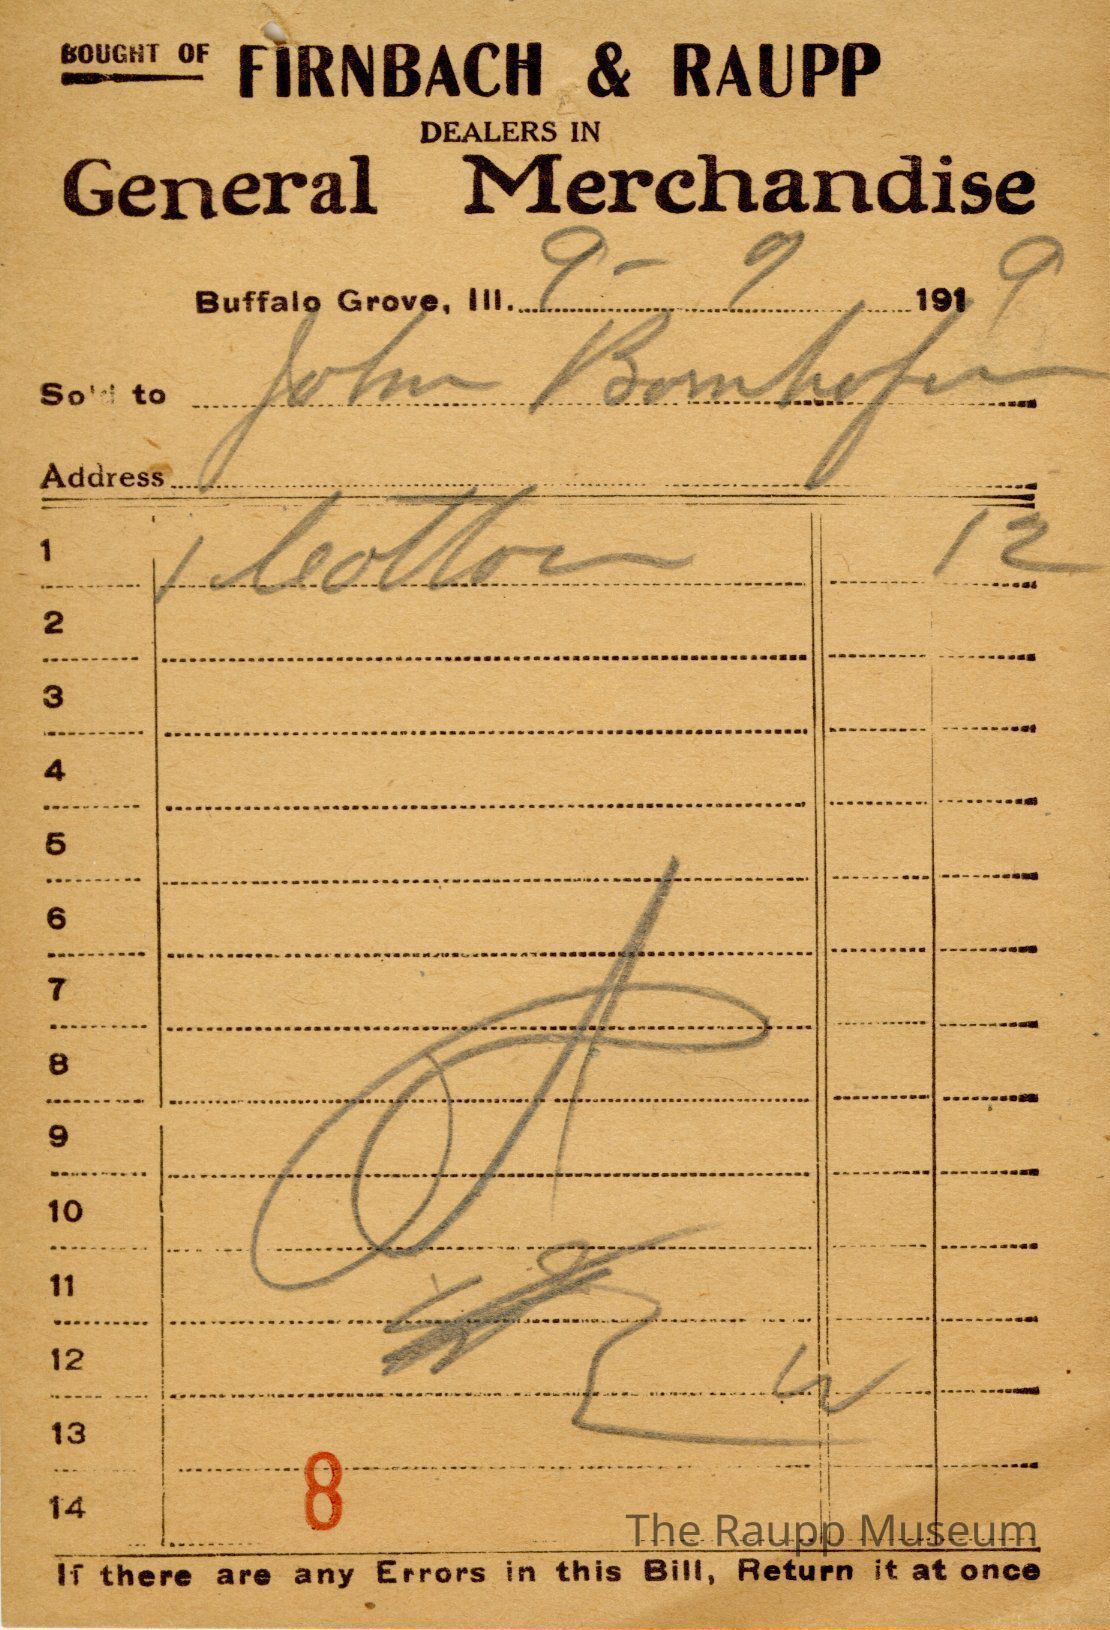 BOUGHT OF FIRNBACH & RAUPP
DEALERS IN
General Merchandise
Buffalo Grove, Ill. 9 - 9 1919
Sold to John Bornhofen
Address
1 1 Cotton 12
2
3
4
5
6
7
8
9
10
11
12
13
14
8
The Raupp Museum
If there are any Errors in this Bill, Return it at once